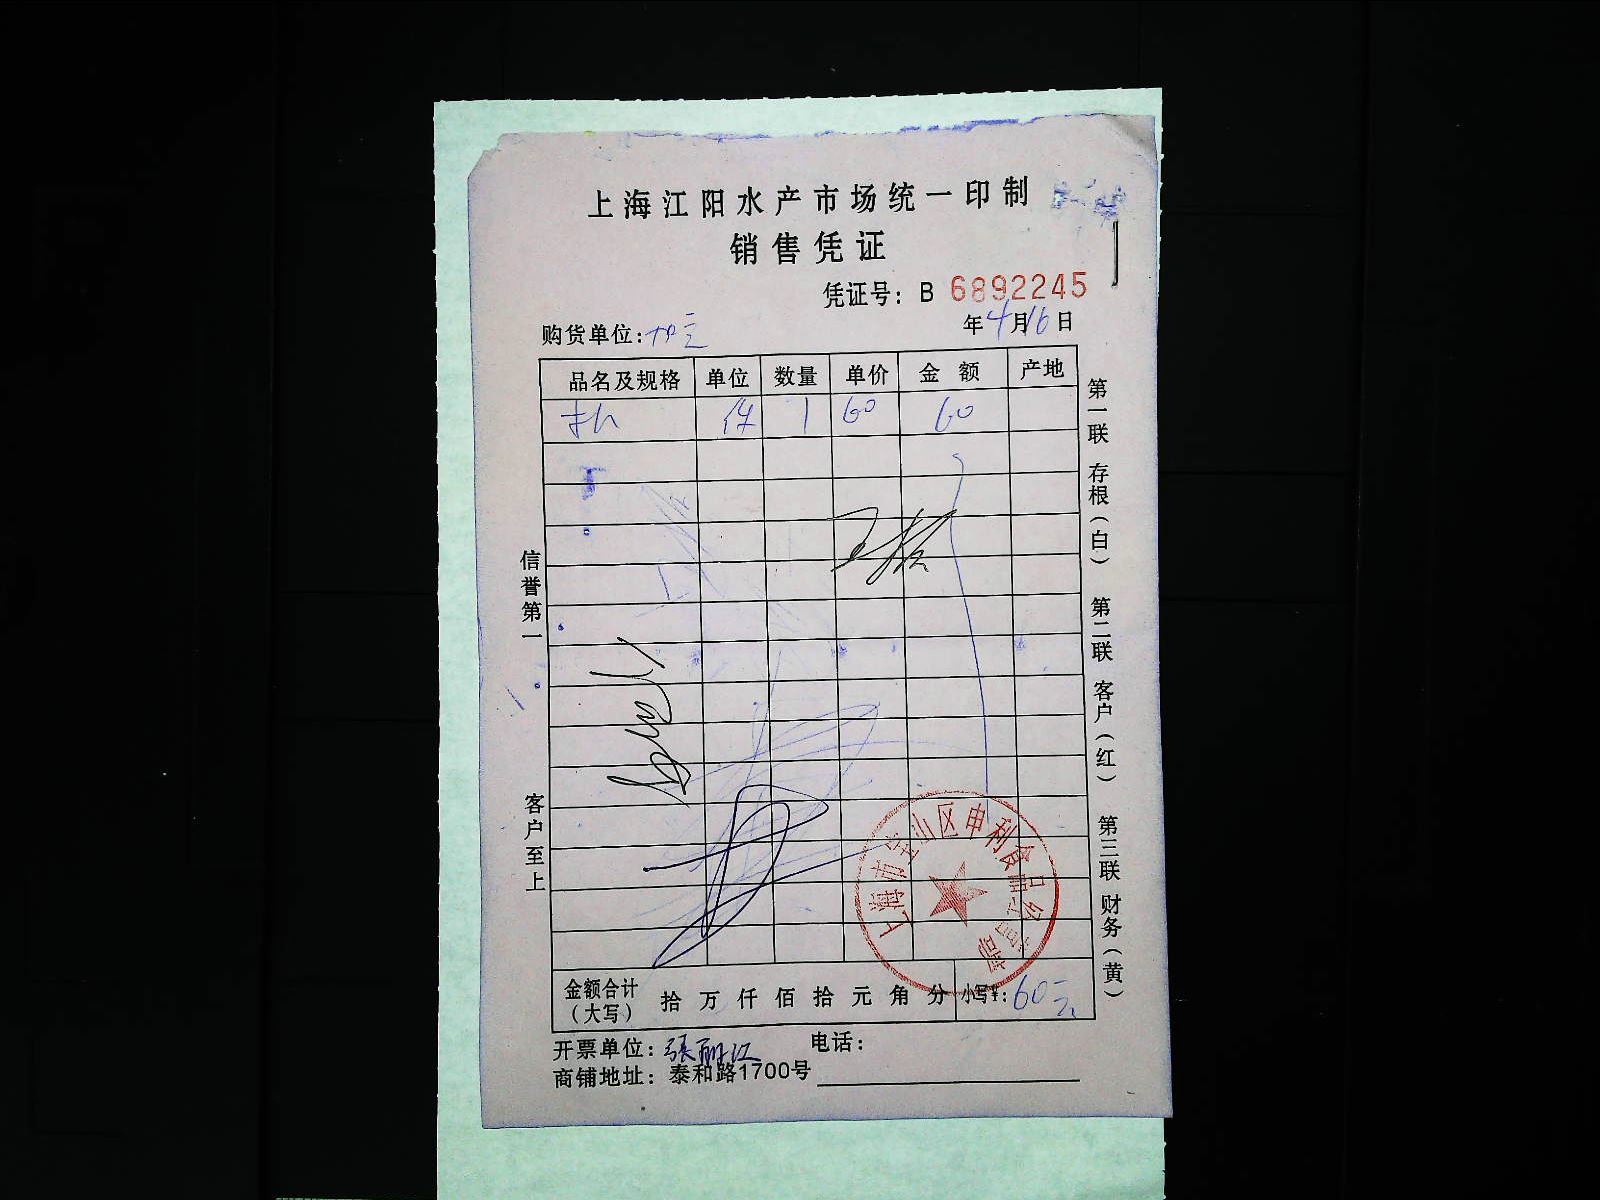 上海江阳水产市场统一印制
销售凭证
凭证号：B 6892245
购货单位： 年4月16日
品名及规格 单位 数量 单价 金额 产地
件 1 60 60
信誉第一
客户至上
第一联 存根（白） 第二联 客户（红） 第三联 财务（黄）
上海市宝山区申利食品经营部
金额合计（大写） 拾 万 仟 佰 拾 元 角 分 小写¥：60元
开票单位：張丽江 电话：
商铺地址：泰和路1700号